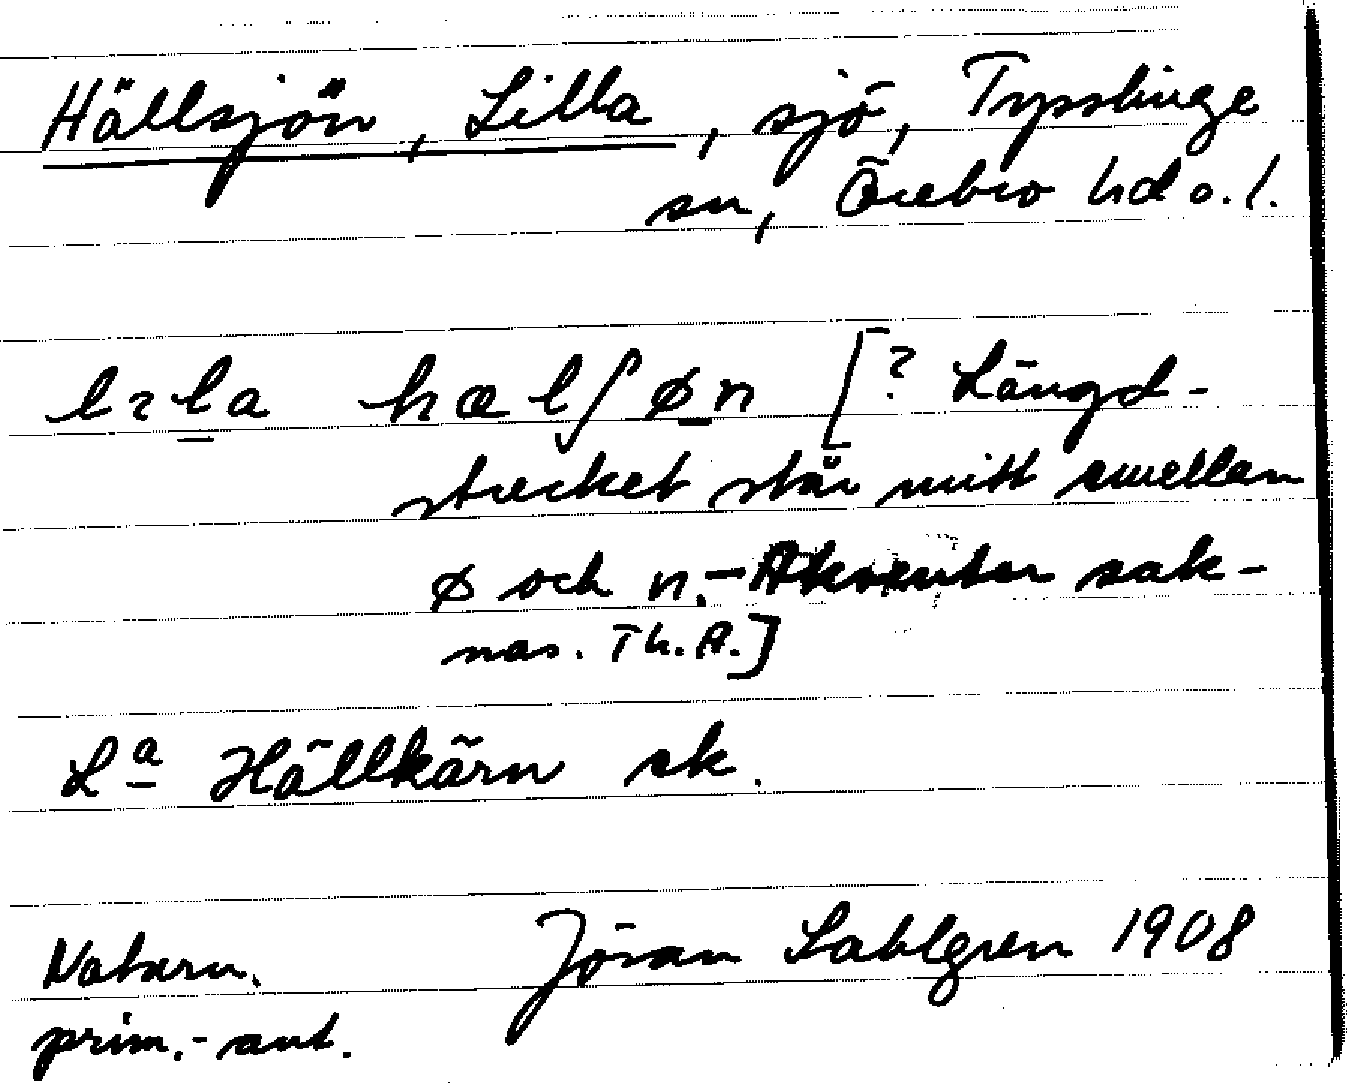 Hällsjön, Lilla, sjö, Tysslinge
sn, Örebro hd o. l.
lıla hælʃøn [? Längd-
strecket står mitt emellan
ø och n. - Akcenter sak-
nas. Th. A.]
Lª Hällkärn sk.
Naturn. Jöran Sahlgren 1908
prim.-ant.